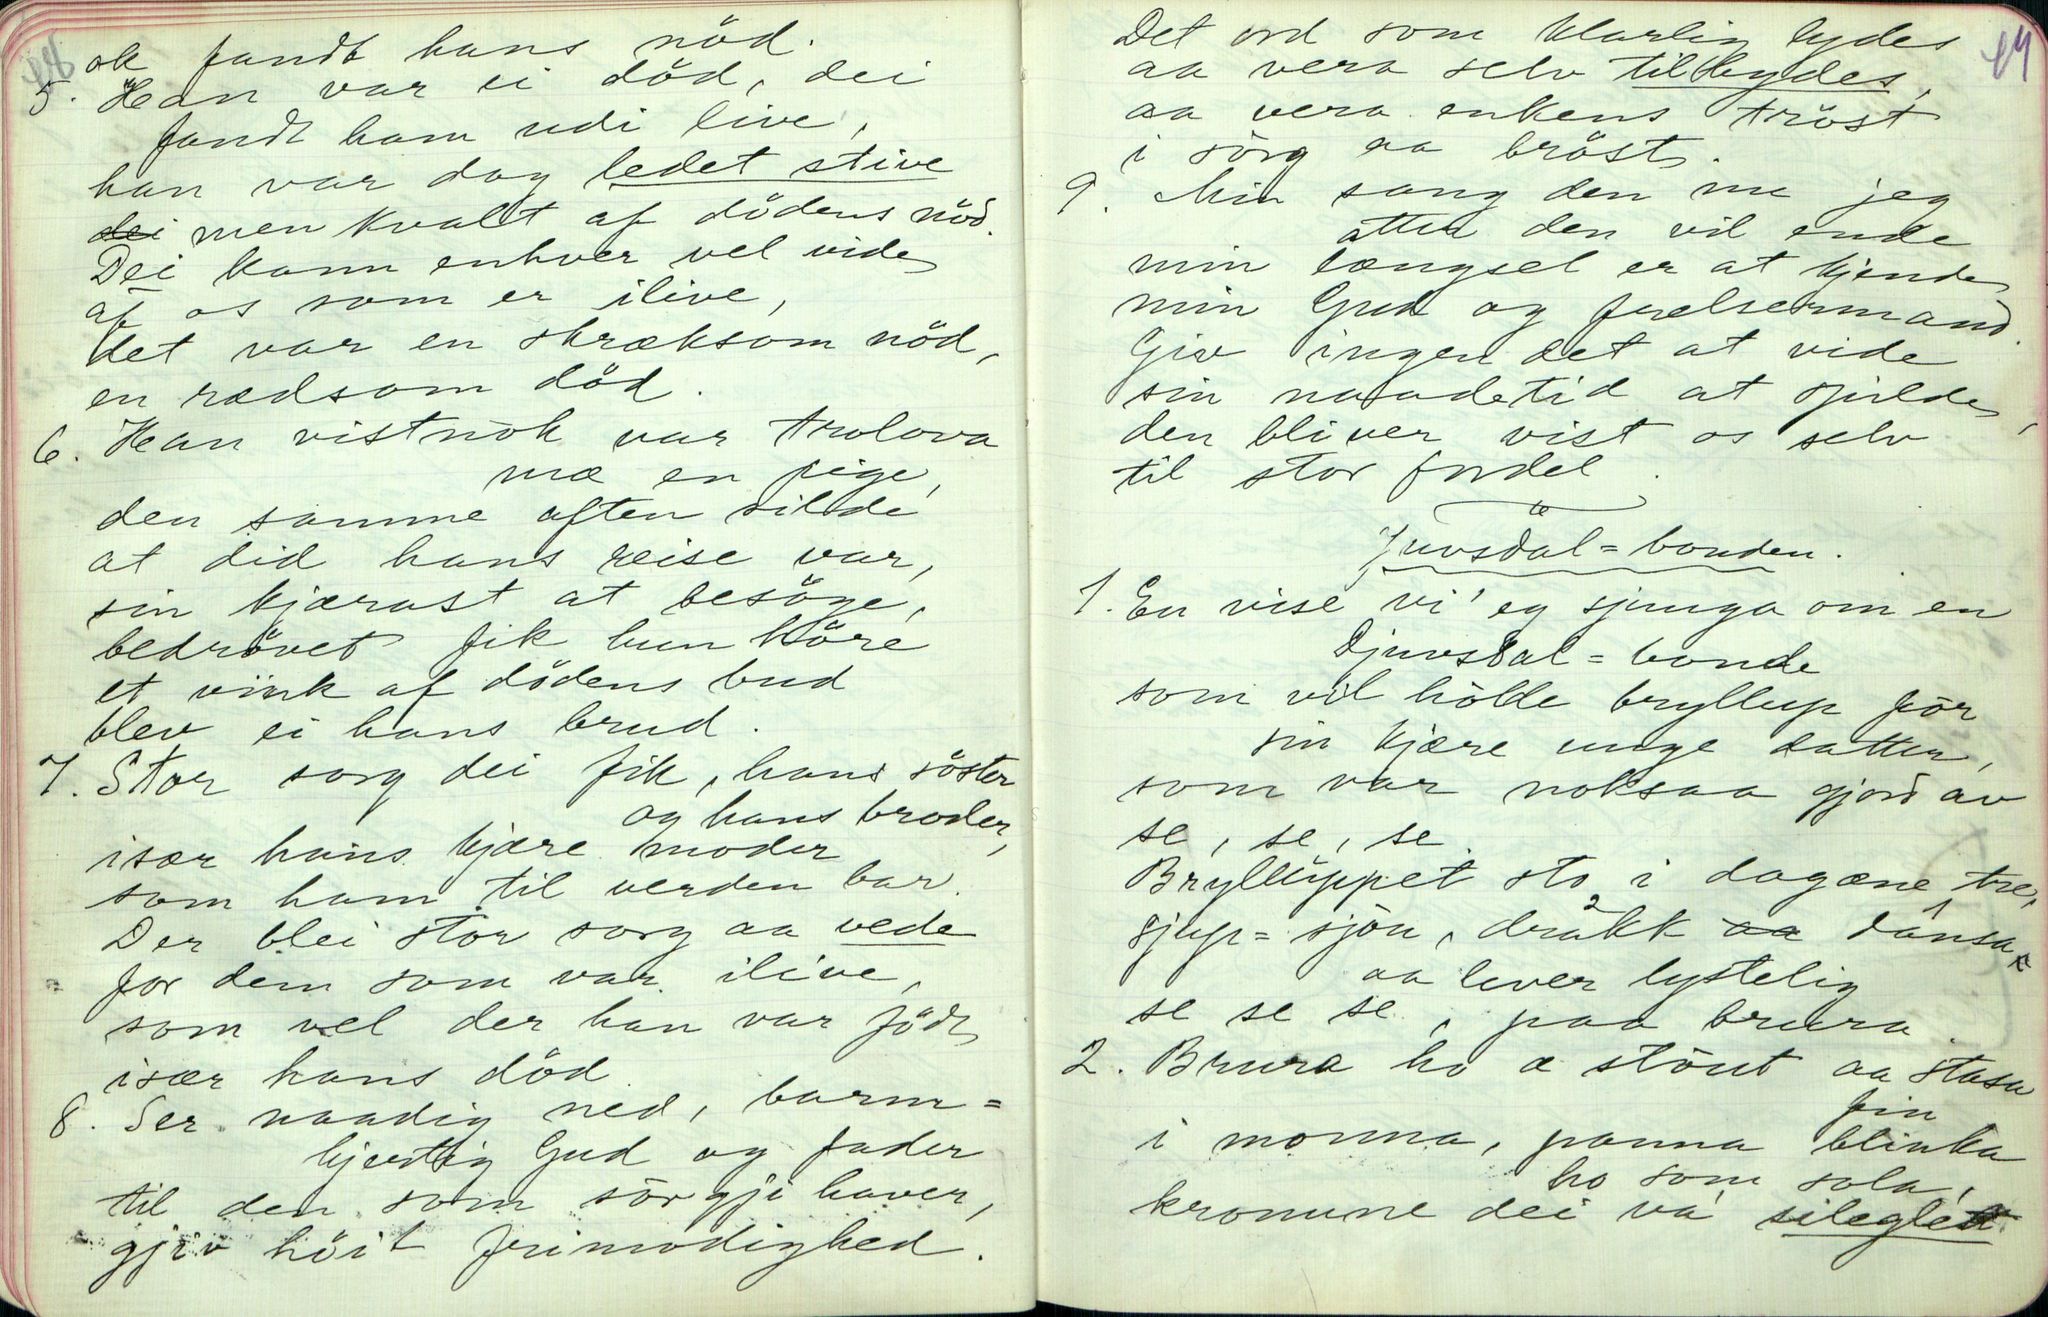 ok fandt hans nöd.
5. Han var ei död, dei
fandt ham udi live,
han var dog ledet stive
dei men kvalt af dödens nöd.
Dei kann enhver vel vide
af os som er ilive,
det var en skræksom nöd,
en rædsom död.
6. Han vistnok var trolova
mæ en pige,
den samme aften silde
at did hans reise var,
sin kjærast at besöge,
bedrövet fik hun höre
et vink af dödens bud
blev ei hans brud.
7. Stor sorg dei fik, hans söster
og hans broder,
især hans kjære moder
som ham til verden bar.
Der blei stor sorg aa vede
for dem som var ilive,
som vel der han var födt,
især hans död.
8. Ser naadig ned, barm=
hjertig Gud og fader
til den som sörgji haver,
gjiv höit frimodighed.
44
Det ord som klarlig lydes
aa vera selv tilbydes,
aa vera enkens tröst
i sörg aa bröst.
9. Min sang den maa jeg
atter den vil ende
min længsel er at kjende
min Gud og frelsermand.
Giv ingen det at vide
sin naadetid at spilde,
den bliver vist os selv
til stor fordel.
Juvsdal=bonden.
1. En vise vi' eg sjunga om en
Djuvsdal=bonde
som vil hölde bryllup för
sin kjære unge datter,
som var noksaa gjord av
se, se, se.
Brylluppet sto i dagane tre,
sjup=sjön, drakk aa dansa
aa lever lystelig
se se se, paa brura
2. Brura ho æ stöut aa stasa
fin
i monna, panna blinka
ho som sola,
kronune dei va sileglett